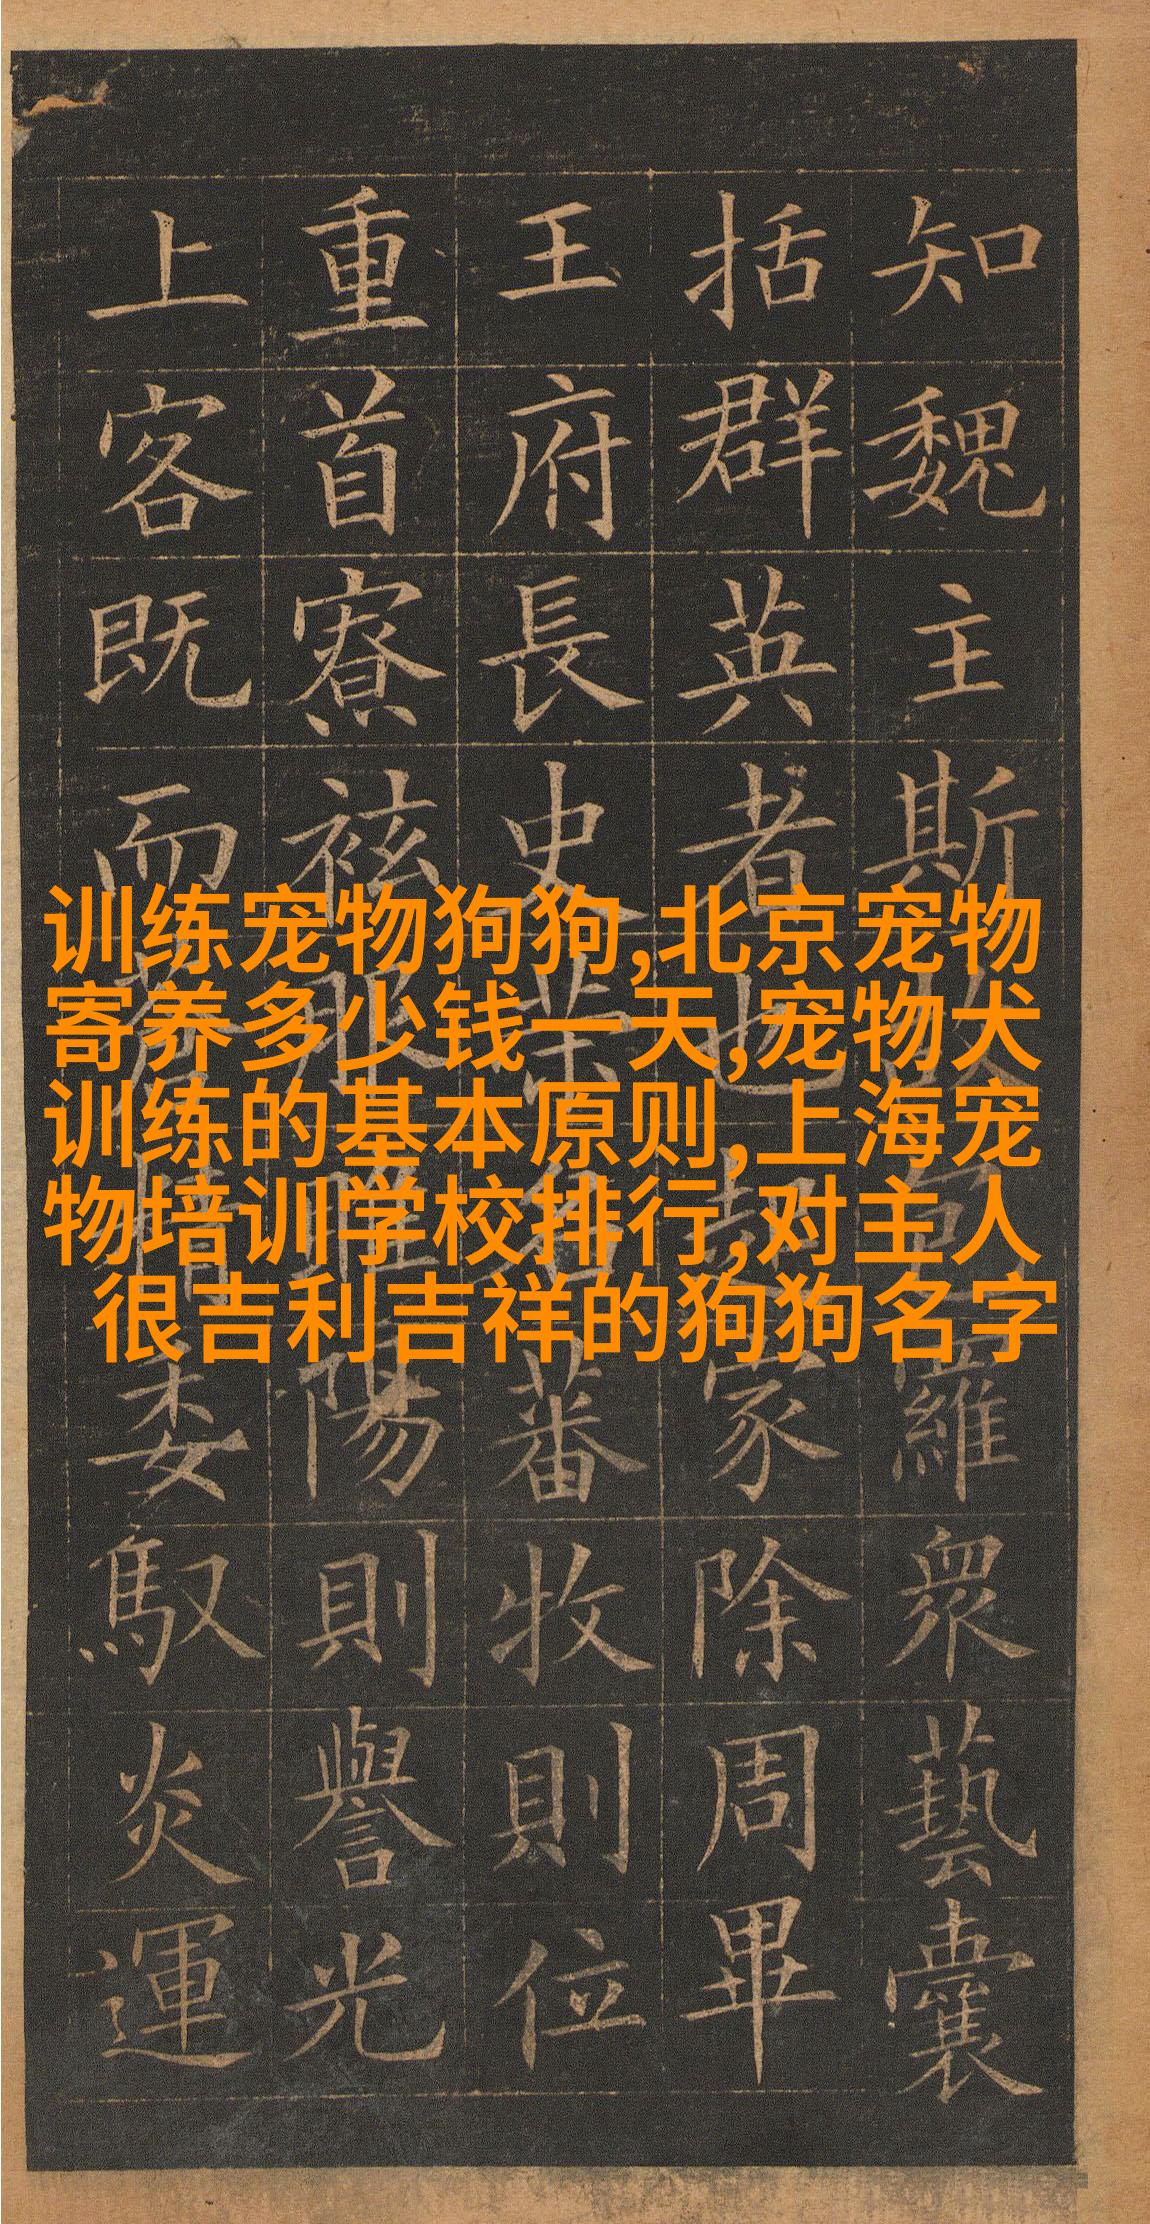 知魏主斯故包羅衆藝囊
括群英者也起家除周畢
王府長史榮名蕃牧則位
重首寮祗服睢陽則譽光
上客既而蒼精委馭炎運
训练宠物狗狗,北京宠物
寄养多少钱一天,宠物犬
训练的基本原则,上海宠
物培训学校排行,对主人
很吉利吉祥的狗狗名字